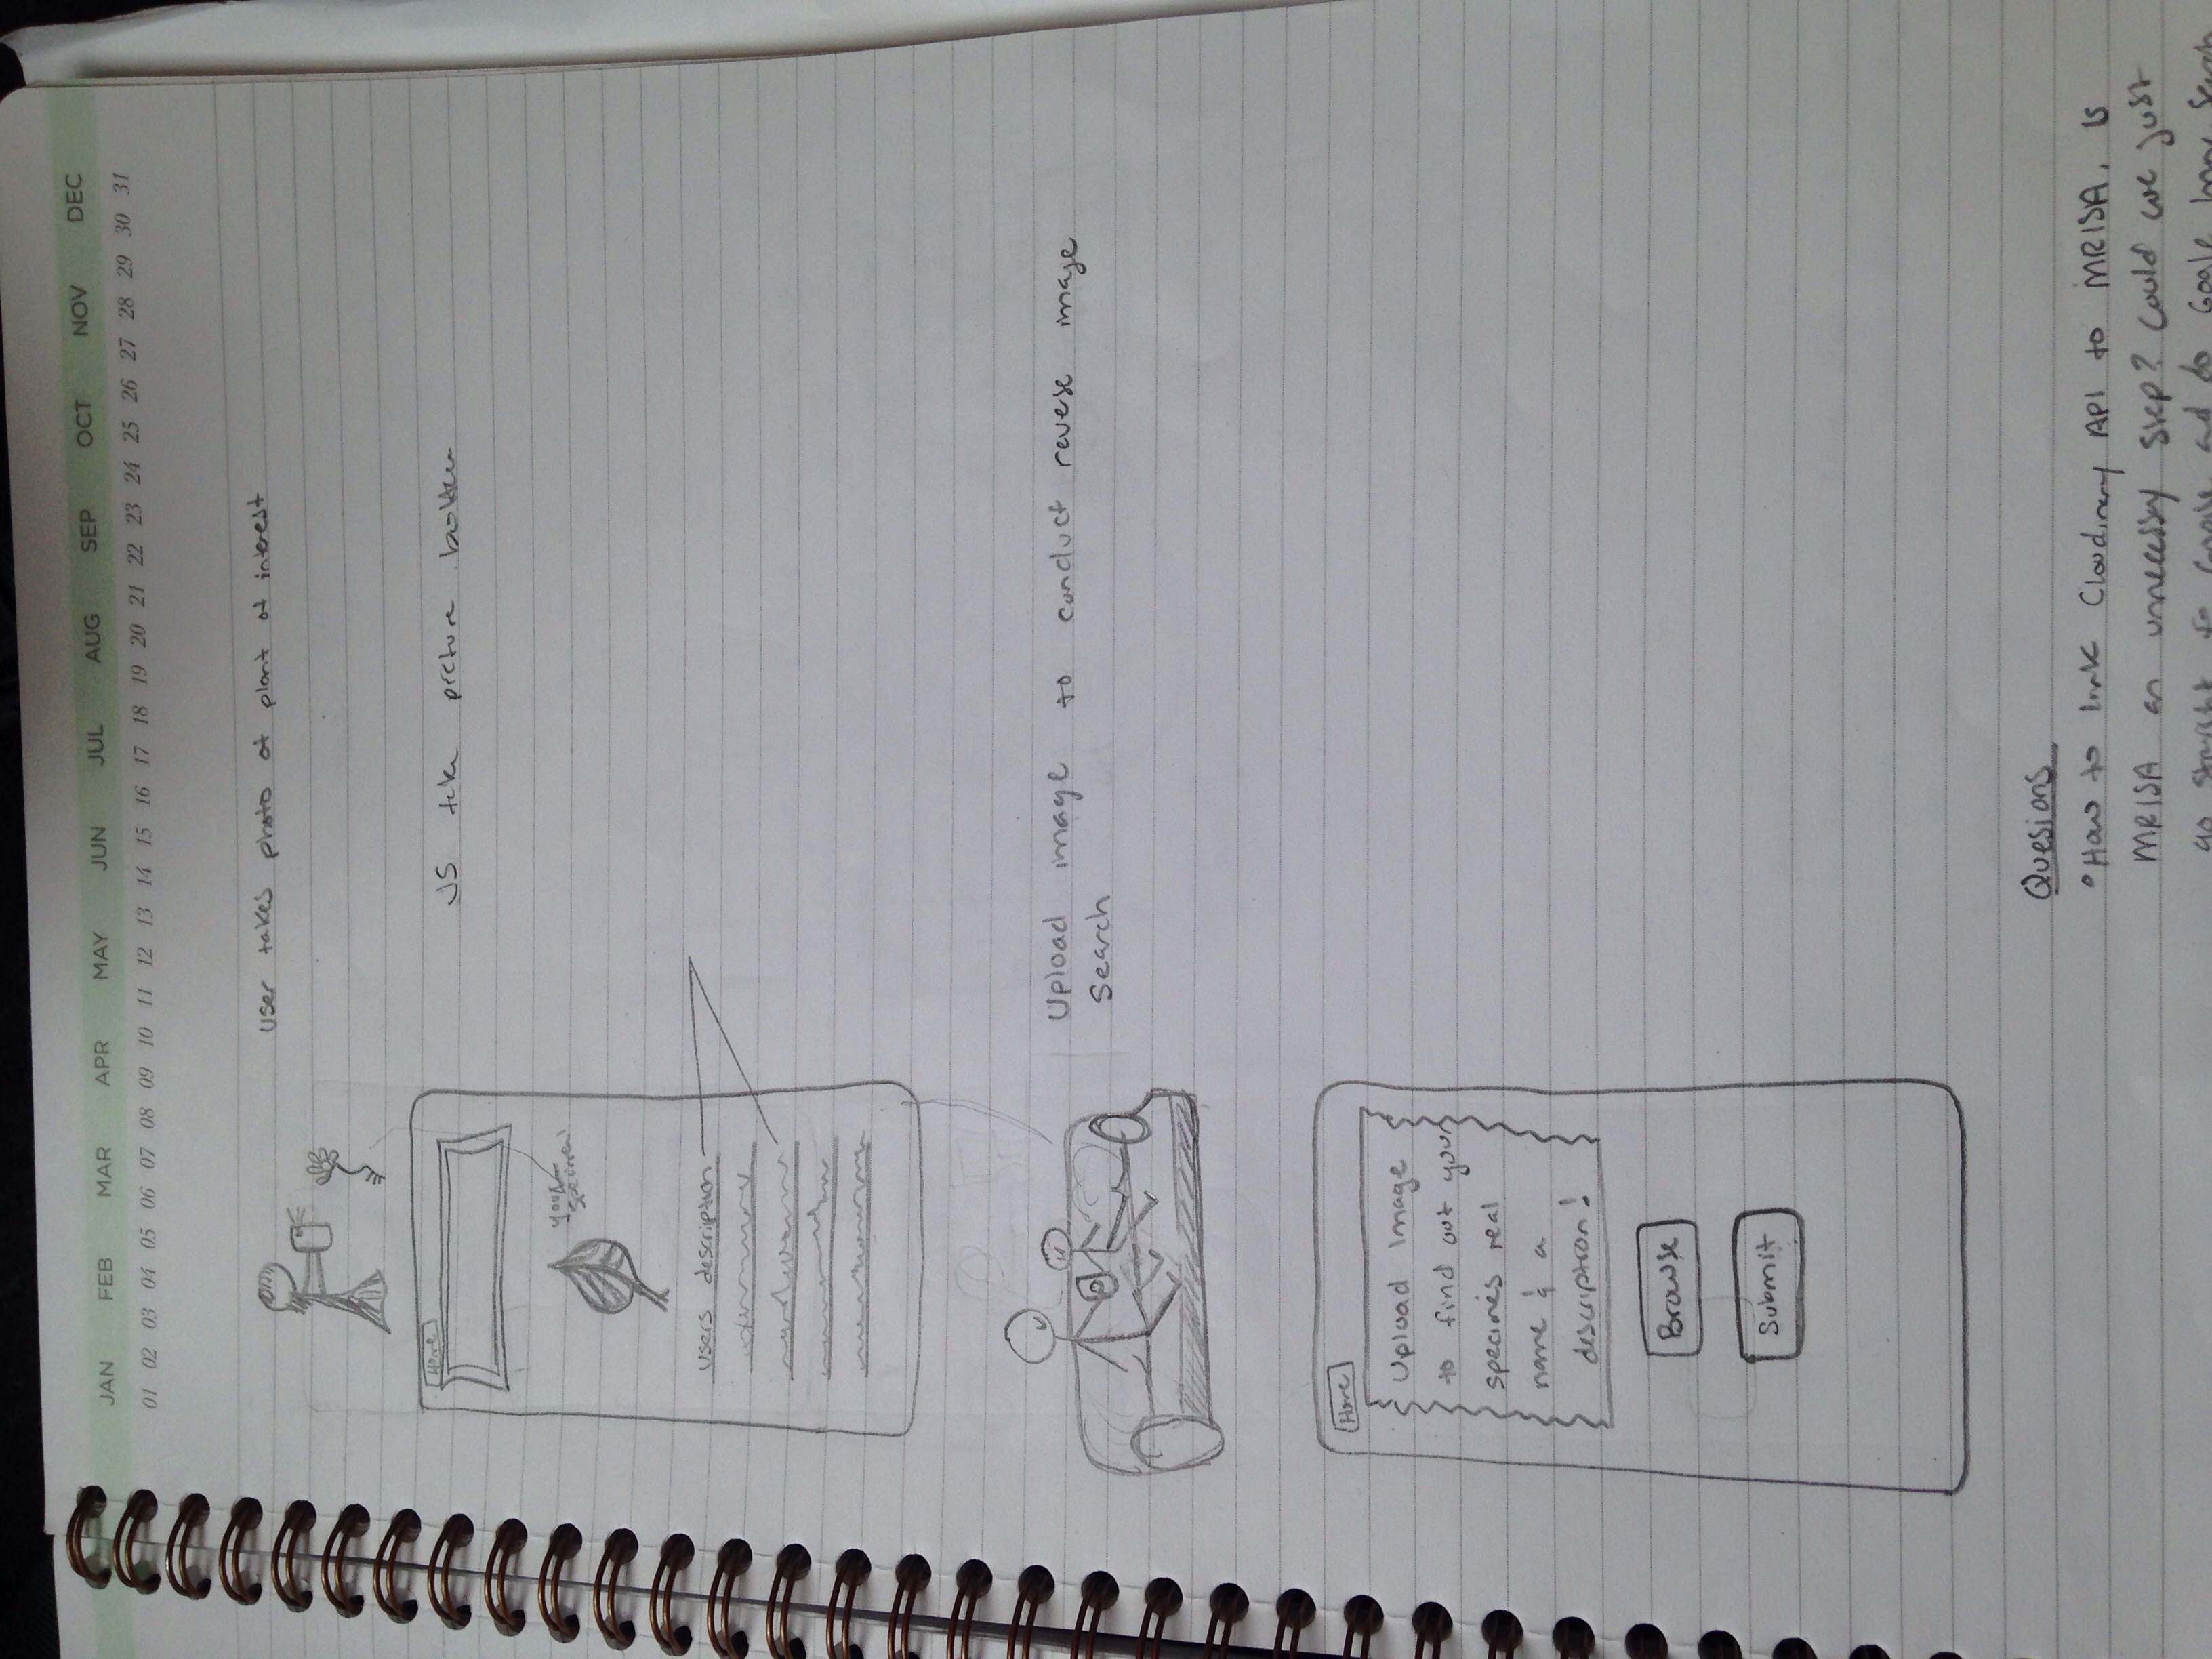 JAN FEB MAR APR MAY JUN JUL AUG SEP OCT NOV DEC
01 02 03 04 05 06 07 08 09 10 11 12 13 14 15 16 17 18 19 20 21 22 23 24 25 26 27 28 29 30 31
User takes photo of plant of interest
Home
JS take picture button
your
specimen
users description
Upload image to conduct reverse image
Search
Home
Upload Image
to find out your
specimes real
name & a
description!
Browse
Submit
Quesions
• How to link Cloudinary API to MRISA. Is
MRISA an unnecessy step? Could we just
go straight to Google and do Google Image Search